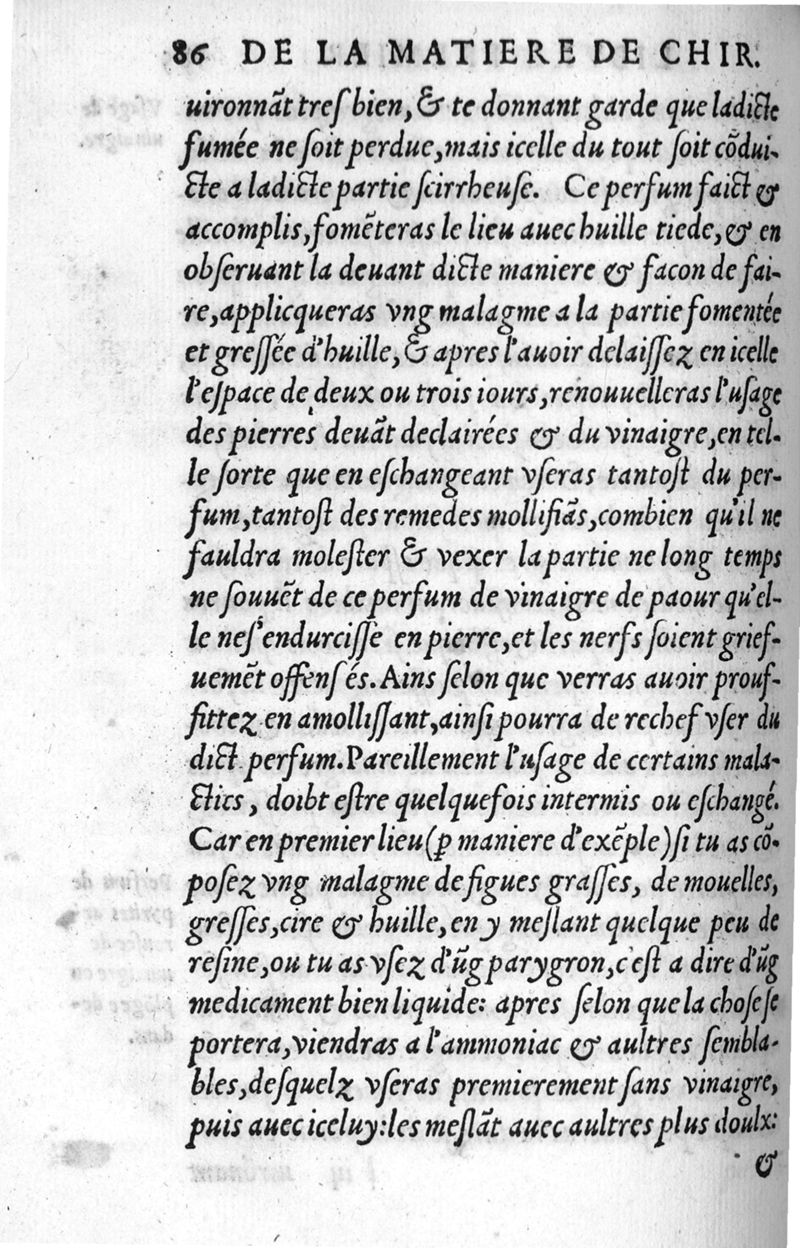 86 DE LA MATIERE DE CHIR.
uironnãt treſbien, & te donnant garde que ladicte
fumée ne ſoit perdue, mais icelle du tout ſoit cõdui-
cte a ladicte partie ſcirrheuſe. Ce perfum faict &
accomplis, fomẽteras le lieu auec huille tiede, & en
obſeruant la deuant dicte maniere & facon de fai-
re, applicqueras vng malagme a la partie fomentée
et greſſée d'huille, & apres l'auoir delaiſſez en icelle
l'eſpace de deux ou trois iours, renouuelleras l'uſage
des pierres deuãt declairées & du vinaigre, en tel-
le ſorte que en eſchangeant vſeras tantoſt du per-
fum, tantoſt des remedes mollifiãs, combien qu'il ne
fauldra moleſter & vexer la partie ne long temps
ne ſouuẽt de ce perfum de vinaigre de paour qu'el-
le neſ'endurciſſe en pierre, et les nerfs ſoient grief-
uemẽt offenſés. Ains ſelon que verras auoir prouf-
fittez en amolliſſant, ainſi pourra de rechef vſer du
dict perfum. Pareillement l'uſage de certains mala-
ctics, doibt eſtre quelquefois intermis ou eſchangé.
Car en premier lieu (ꝑ maniere d'exẽple) ſi tu as cõ-
poſez vng malagme de figues graſſes, de mouelles,
greſſes, cire & huille, en y meſlant quelque peu de
reſine, ou tu as vſez d'ũg parygron, c'eſt a dire d'ũg
medicament bien liquide: apres ſelon que la choſe ſe
portera, viendras a l'ammoniac & aultres ſembla-
bles, deſquelz vſeras premierement ſans vinaigre,
puis auec iceluy: les meſlãt auec aultres plus doulx:
&